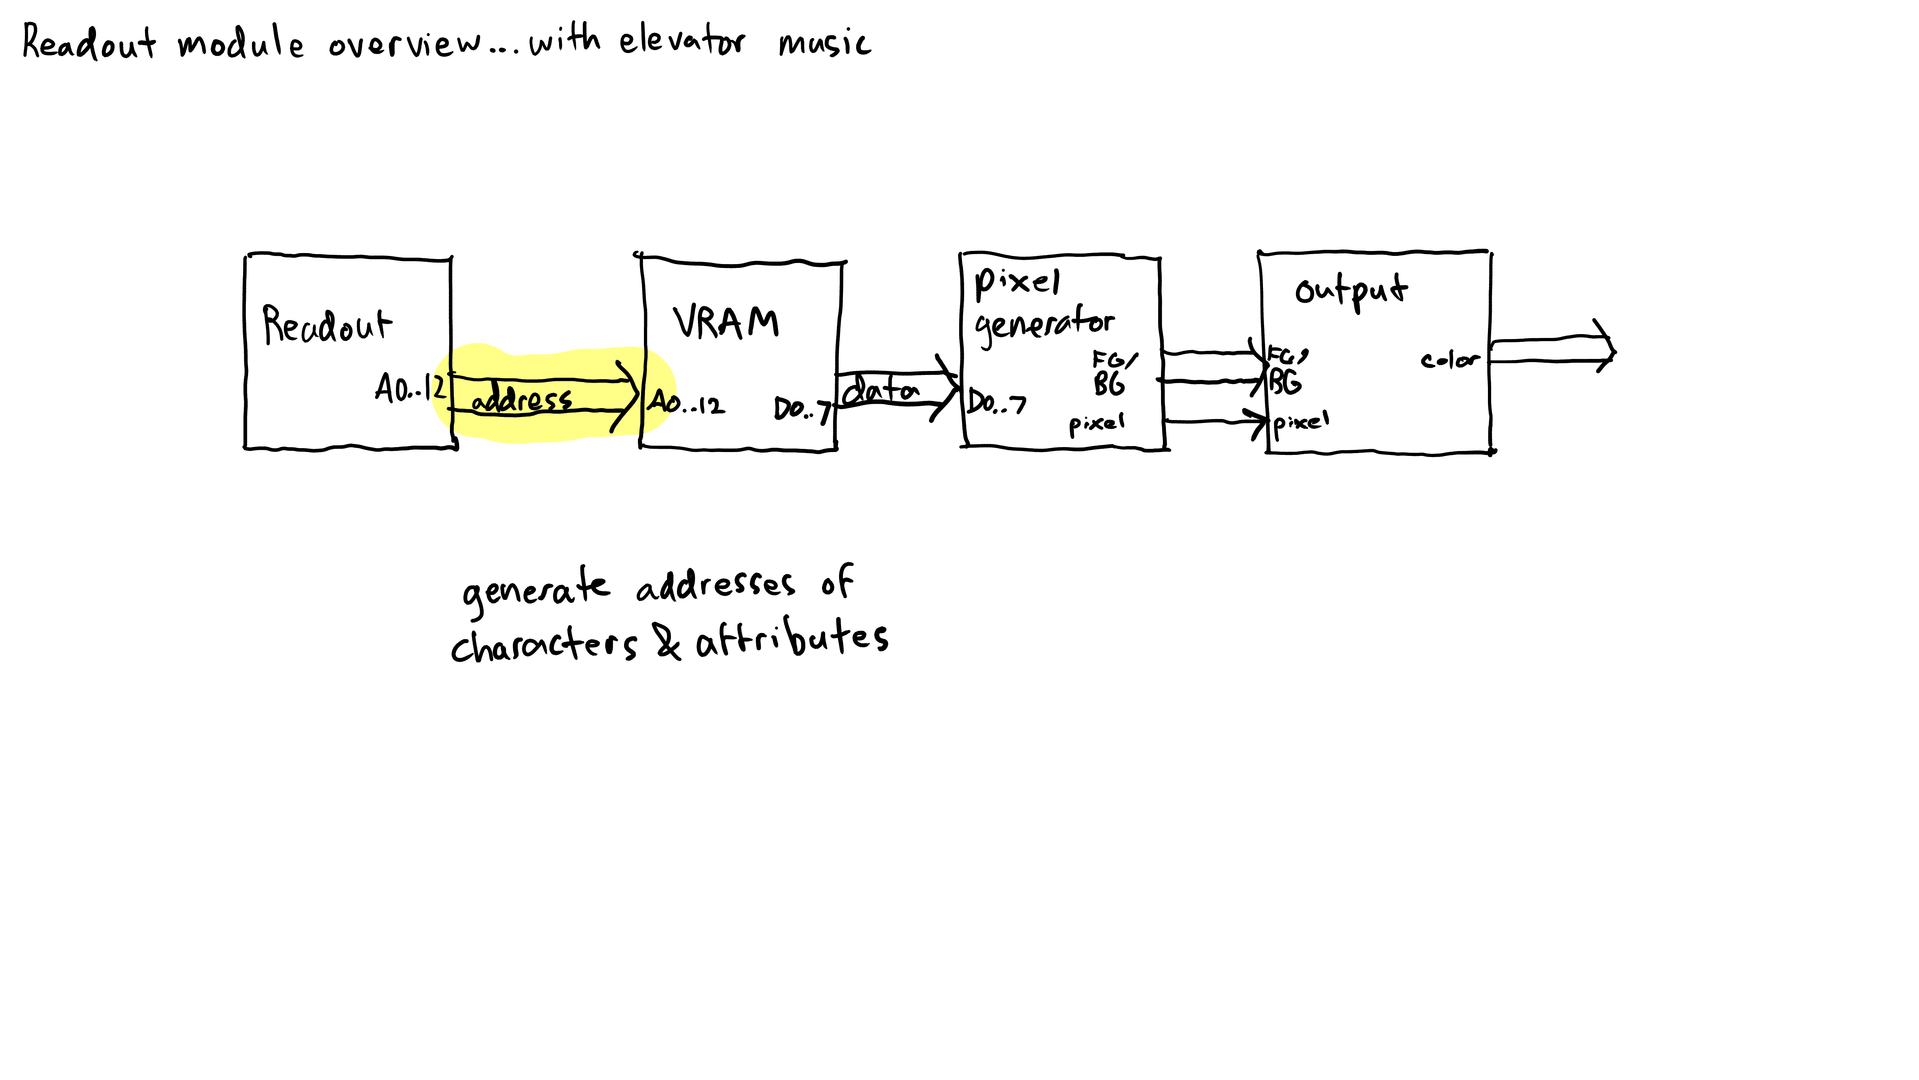 Readout module overview...with elevator music
Readout
A0..12
address
VRAM
A0..12
D0..7
data
pixel
generator
D0..7
FG/
BG
pixel
output
FG,
BG
pixel
color
generate addresses of
characters & attributes